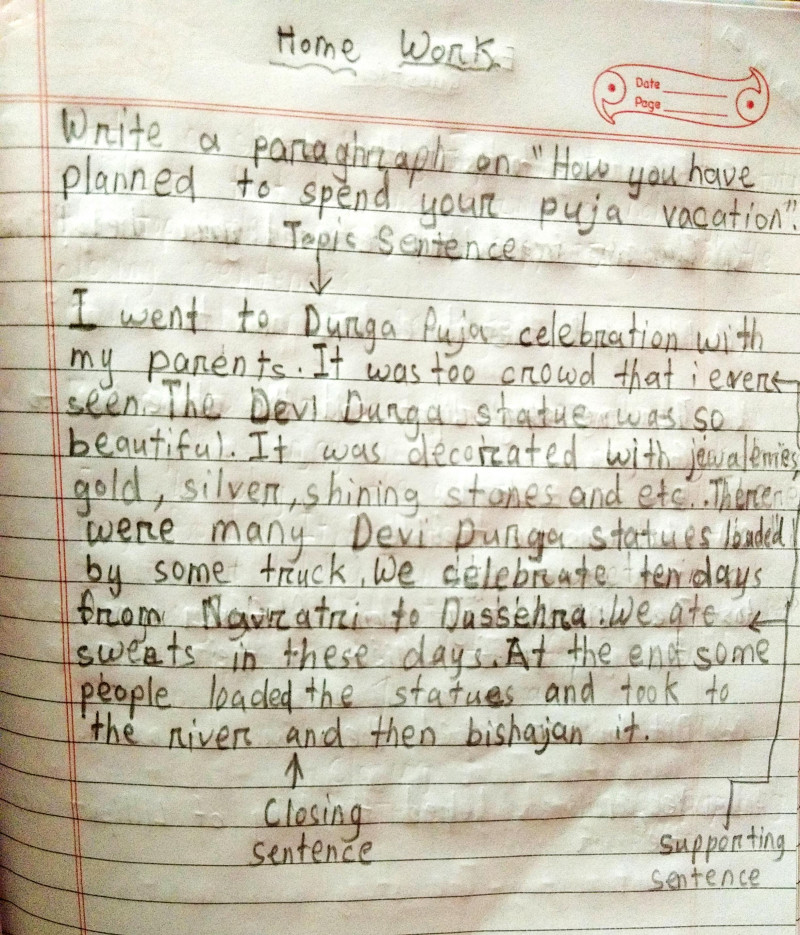 Home Work
Date
Page
Write a paraghraph on "How you have
planned to spend your puja vacation".
Topic Sentence
I went to Durga Puja celebration with
my parents. It was too crowd that i ever
seen. The Devi Durga statue was so
beautiful. It was decorated with jewaleries,
gold, silver, shining stones and etc.. There
were many Devi Durga statues loaded
by some truck. We celebrate ten days
from Navratri to Dussehra. We ate
sweets in these days. At the end some
people loaded the statues and took to
the river and then bishajan it.
Closing
sentence
supporting
sentence